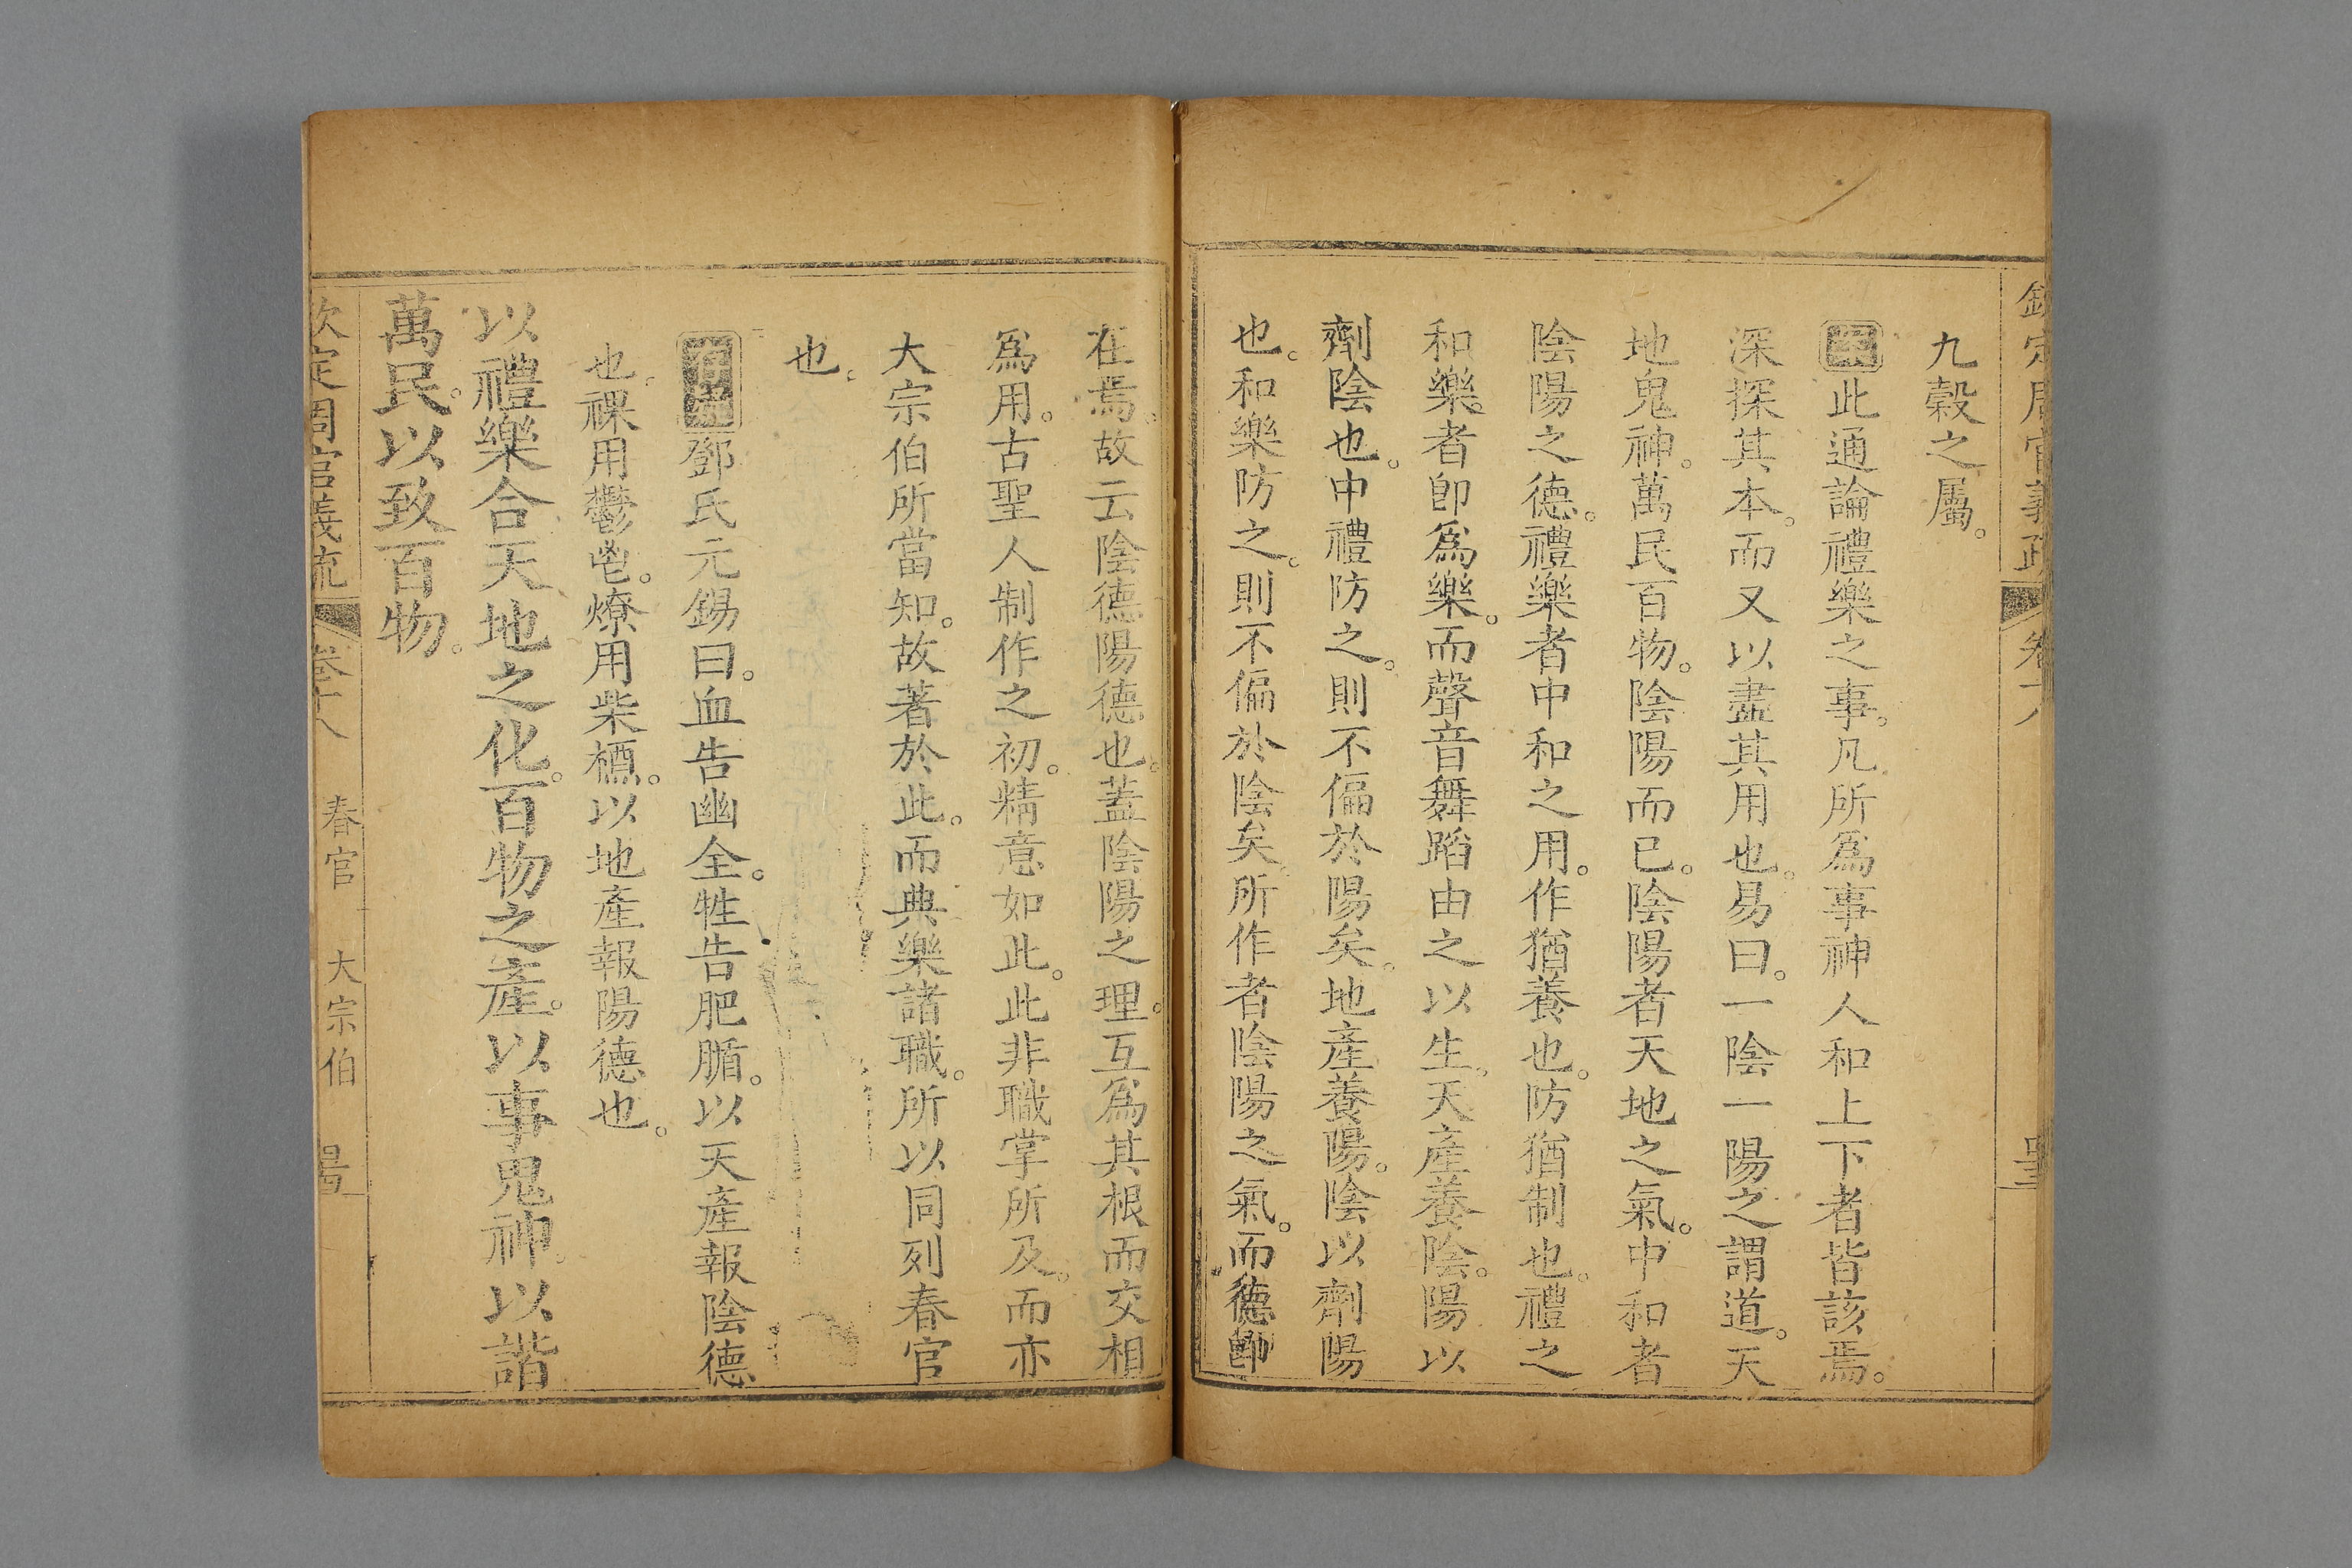 欽定周官義疏 卷十八
九穀之屬。
案此通論禮樂之事。凡所爲事神人和上下者皆該焉。
深探其本。而又以盡其用也。易曰。一陰一陽之謂道。天
地鬼神。萬民百物。陰陽而已。陰陽者天地之氣。中和者
陰陽之德。禮樂者中和之用。作猶養也。防猶制也。禮之
和樂。者卽爲樂。而聲音舞蹈由之以生。天產養陰。陽以
劑陰也。中禮防之。則不偏於陽矣。地產養陽。陰以劑陽
也。和樂防之。則不偏於陰矣。所作者陰陽之氣。而德卽
在焉。故云陰德陽德也。蓋陰陽之理。互爲其根而交相
爲用。古聖人制作之初。精意如此。此非職掌所及。而亦
大宗伯所當知。故著於此。而典樂諸職。所以同列春官
也。
鄧氏元錫曰。血告幽全。牲告肥腯。以天產報陰德
也。祼用鬱鬯。燎用柴槱。以地產報陽德也。
以禮樂合天地之化。百物之產。以事鬼神。以諧
萬民。以致百物。
欽定周官義疏 卷十八 春官 大宗伯